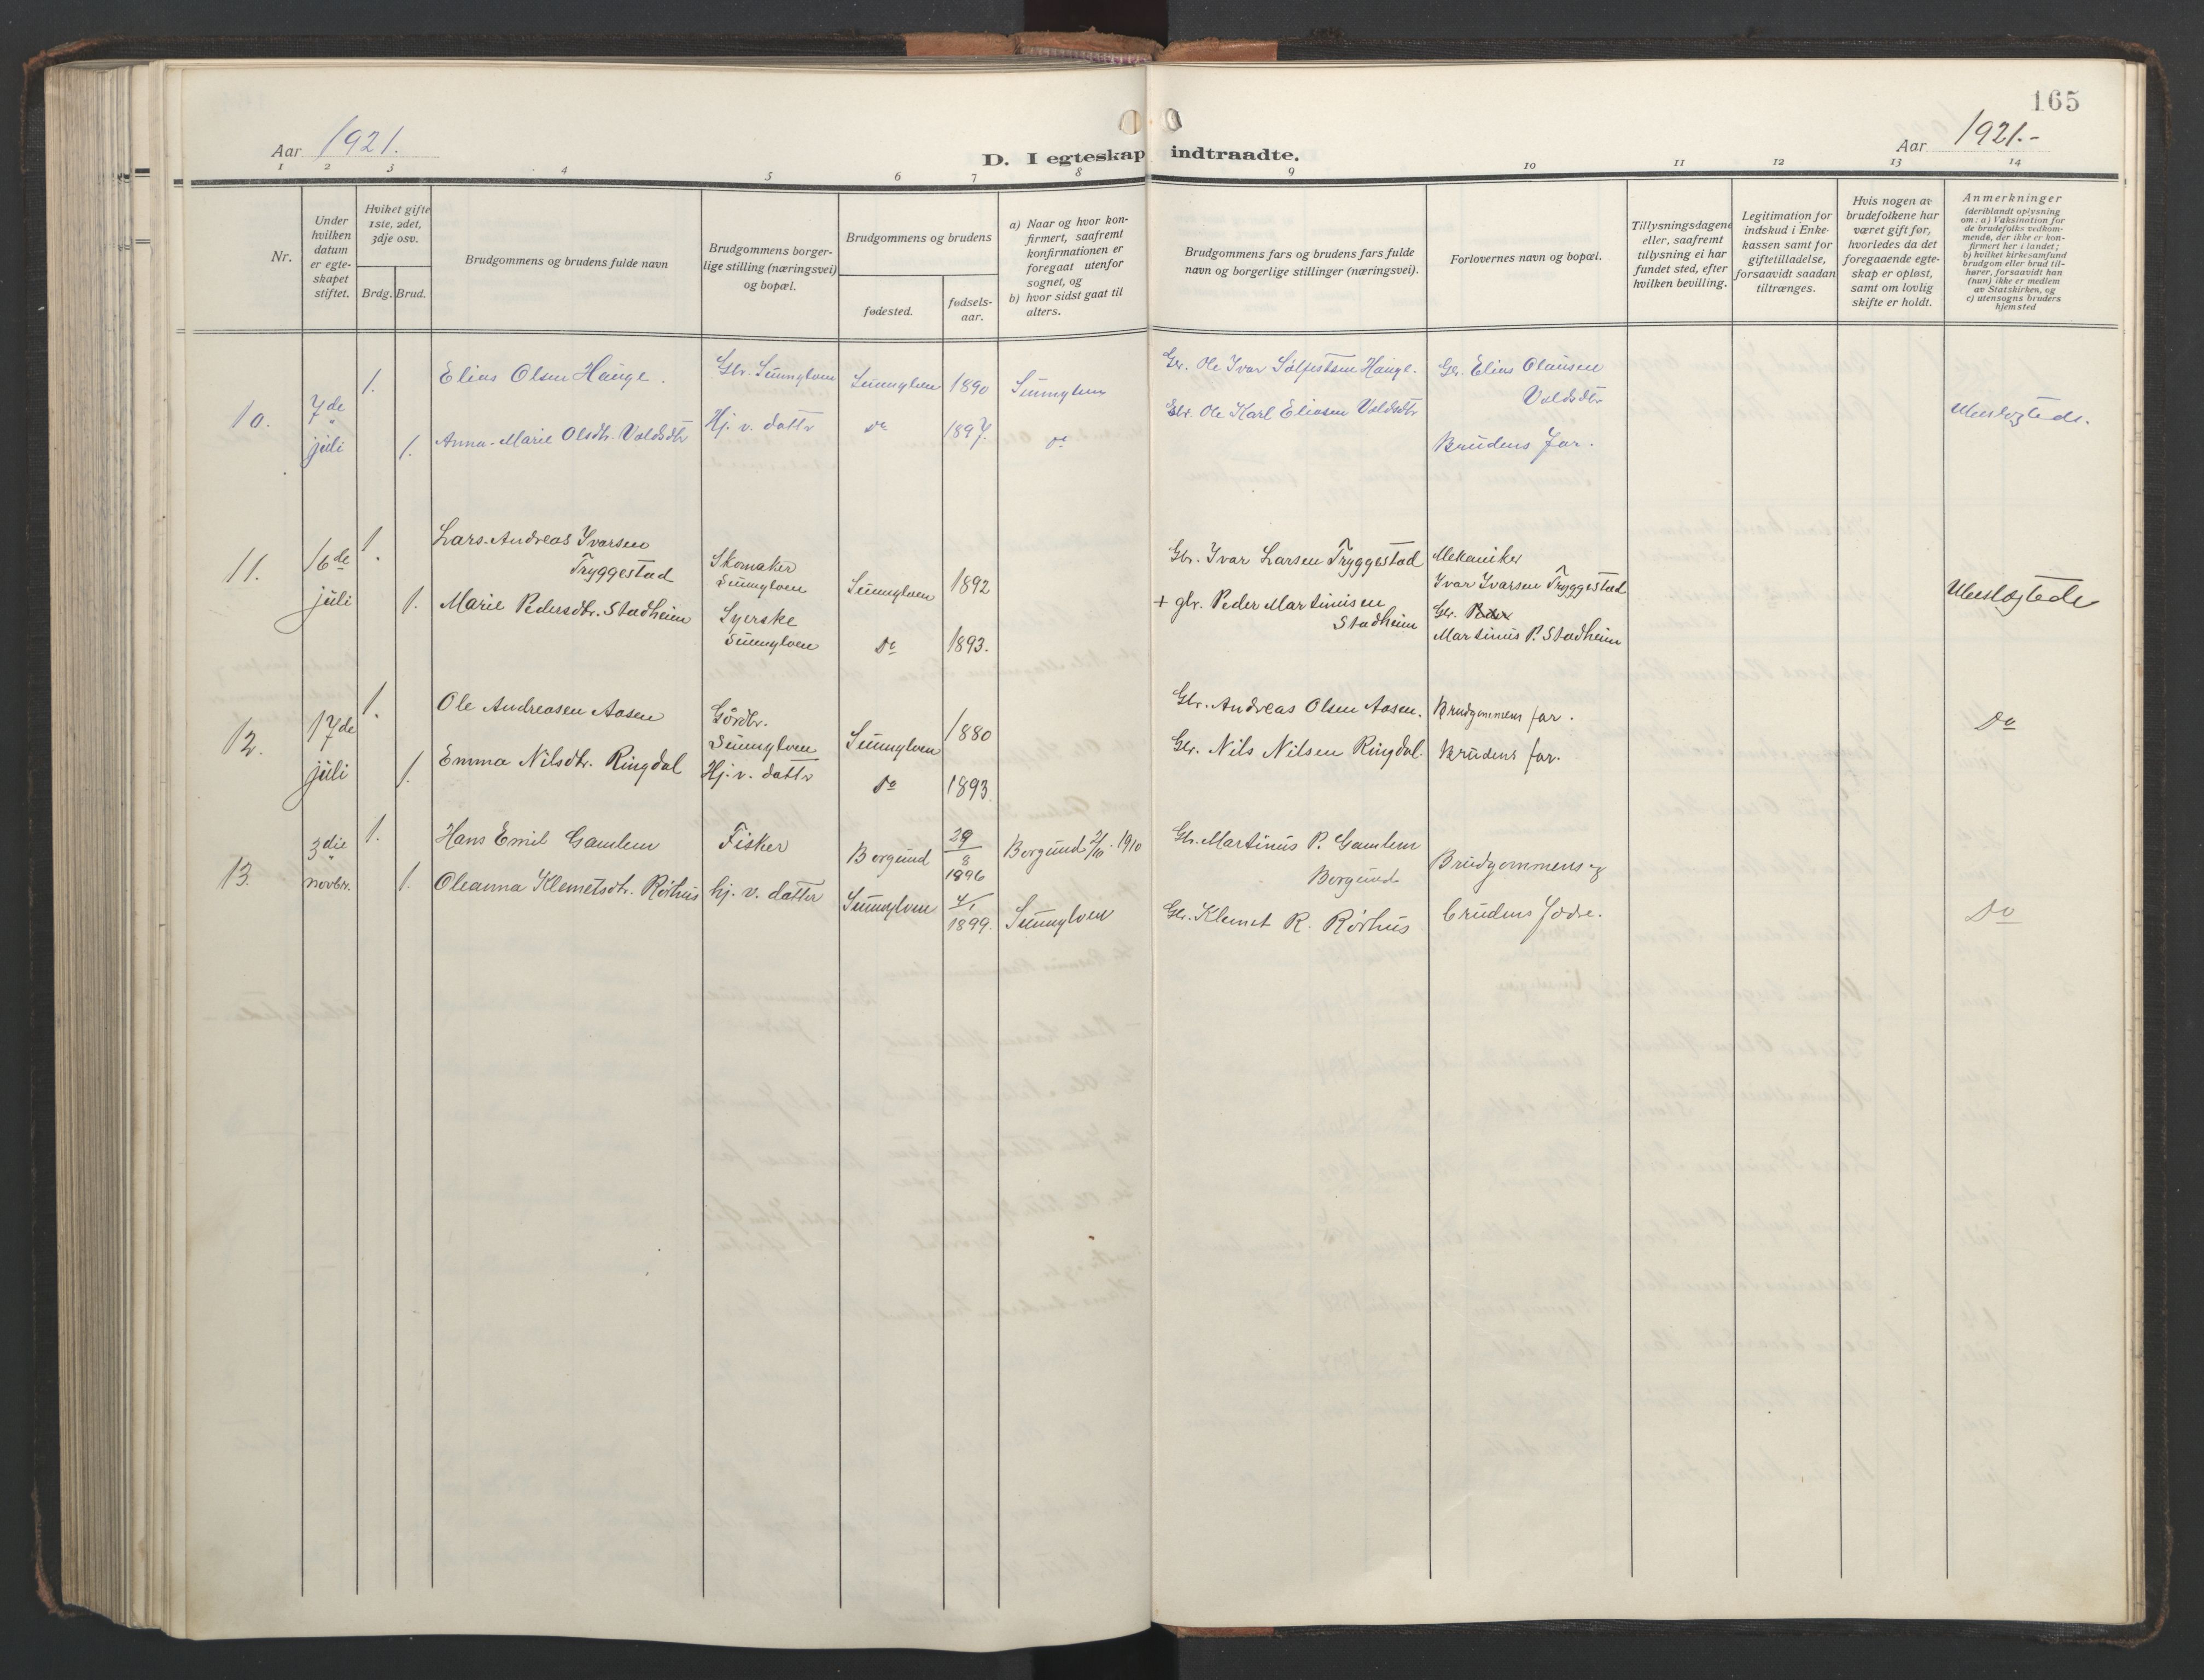 165
Aar 1921.
D. I egteskap indtraadte.
Aar 1921.-
1 2 3 4 5 6 7 8 9 10 11 12 13 14
Nr.
Under
hvilken
datum
er egte-
skapet
stiftet.
Hviket gifte
1ste, 2det,
3dje osv.
Brdg. Brud.
Brudgommens og brudens fulde navn
Brudgommens borger-
lige stilling (næringsvei)
og bopæl.
Brudgommens og brudens
fødested.
fødsels-
aar.
a) Naar og hvor kon-
firmert, saafremt
konfirmationen er
foregaat utenfor
sognet, og
b) hvor sidst gaat til
alters.
Brudgommens fars og brudens fars fulde
navn og borgerlige stillinger (næringsvei).
Forlovernes navn og bopæl.
Tillysningsdagene
eller, saafremt
tillysning ei har
fundet sted, efter
hvilken bevilling.
Legitimation for
indskud i Enke-
kassen samt for
giftetilladelse,
forsaavidt saadan
tiltrænges.
Hvis nogen av
brudefolkene har
været gift før,
hvorledes da det
foregaaende egte-
skap er opløst,
samt om lovlig
skifte er holdt.
Anmerkninger
(deriblandt oplysning
om: a) Vaksination for
de brudefolks vedkom-
mende, der ikke er kon-
firmert her i landet;
b) hvilket kirkesamfund
brudgom eller brud til-
hører, forsaavidt han
(hun) ikke er medlem
av Statskirken, og
c) utensogns bruders
hjemsted
10. 7de juli
1. Elias Olsen Hauge. Gbr. Sunnylven Sunnylven 1890 Sunnylven
Gbr. Ole Ivar Sølfestsen Hauge. Gbr. Elias Olausen
Voldsdbr
1. Anna-Marie Olsdtr. Voldsdbr Hj. v. datter do 1897. do
Gbr. Ole Karl Eliasen Voldsdbr
Brudens Far.
Ubeslegtede.
11. 16de juli
1. Lars-Andreas Ivarsen
Tryggestad
Skomaker
Sunnylven
Sunnylven 1892
Gbr. Ivar Larsen Tryggestad
Mekaniker
Ivar Ivarsen Tryggestad
1. Marie Pedersdtr. Stadheim
Syerske
Sunnylven
Do 1893.
+ gbr. Peder Martinusen
Stadheim
Gbr. Peder
Martinus P. Stadheim
Ubeslegtede
12. 17de juli
1. Ole Andreasen Aasen
Gårdbr.
Sunnylven
Sunnylven 1880
Gbr. Andreas Olsen Aasen. Brudgommens far.
Do
1. Emma Nilsdtr. Ringdal Hj. v. datter Do 1893
Gbr. Nils Nilsen Ringdal. Brudens far.
13. 3die novbr.
1. Hans Emil Gamlem Fisker Borgund 29/8 1896 Borgund 2/10. 1910
Gbr. Martinus P. Gamlem
Borgund
Brudgommens og
1. Oleanna Klemetsdtr. Rørhus hj. v. datter Sunnylven 4/1 1899. Sunnylven
Gbr. Klemet R. Rørhus
brudens Fædre.
Do